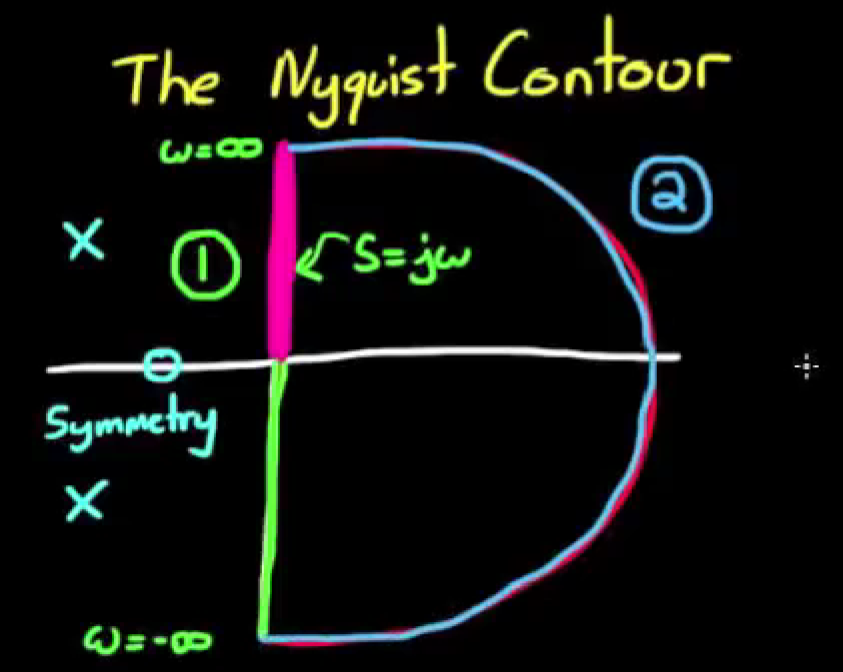 The Nyquist Contour
ω=∞
2
X
1
S=jω
Symmetry
X
ω=-∞